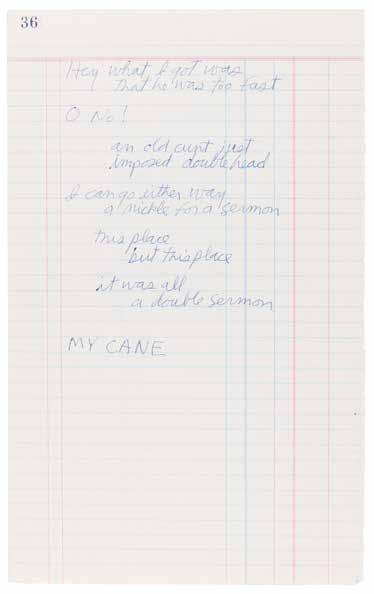 36
Hey what I got was
that he was too fast
O No!
an old cunt just
imposed doublehead
I can go either way
a nickle for a sermon
this place
but this place
it was all
a double sermon
MY CANE